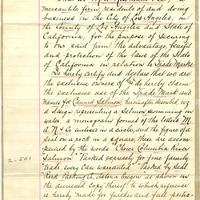 mercantile firm resident of and doing
business in the City of Los Angeles, in
the County of Los Angeles and State of
California, for the purpose of securing
to our said firm the advantage, 
and protection of the laws of the State
of California in relation to Trade Marks
do hereby certify and declare that we are
the exclusive owners of and do hereby claim
the exclusive use of the Trade Mark and
name for Canned Salmon,
a design representing a Salmon swimming in
water, a monogram formed of the letters M
& N & Co within a circle, and the figure of a
on a rock in a square, these are accom-
panied by the words "Choice Columbia River
Salmon" Packed expressly for fine family
trade every Can warranted"
Packing Co. Astoria Oregon as shown on
the annexed copy thereof to which reference
is hereby made for